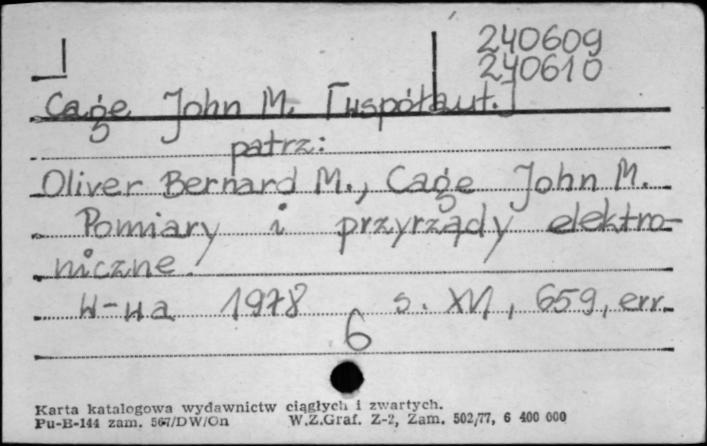 240609
240610
Cage John M. [współaut.]
patrz:
Oliver Bernard M., Cage John M.
Pomiary i przyrządy elektro-
niczne.
W-wa 1978 s. XVI, 659, err.
6
Karta katalogowa wydawnictw ciągłych i zwartych.
Pu-B-144 zam. 567/DW/On W.Z.Graf. Z-2, Zam. 502/77, 6 400 000